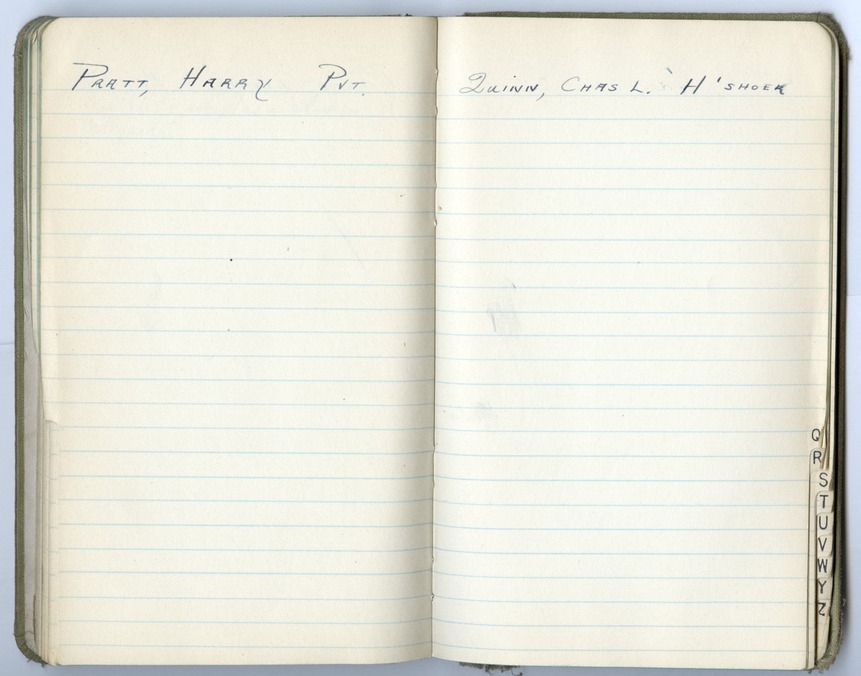 Pratt, Harry Pvt.
Quinn, Chas L. H'shoer
Q
R
S
T
U
V
W
Y
Z